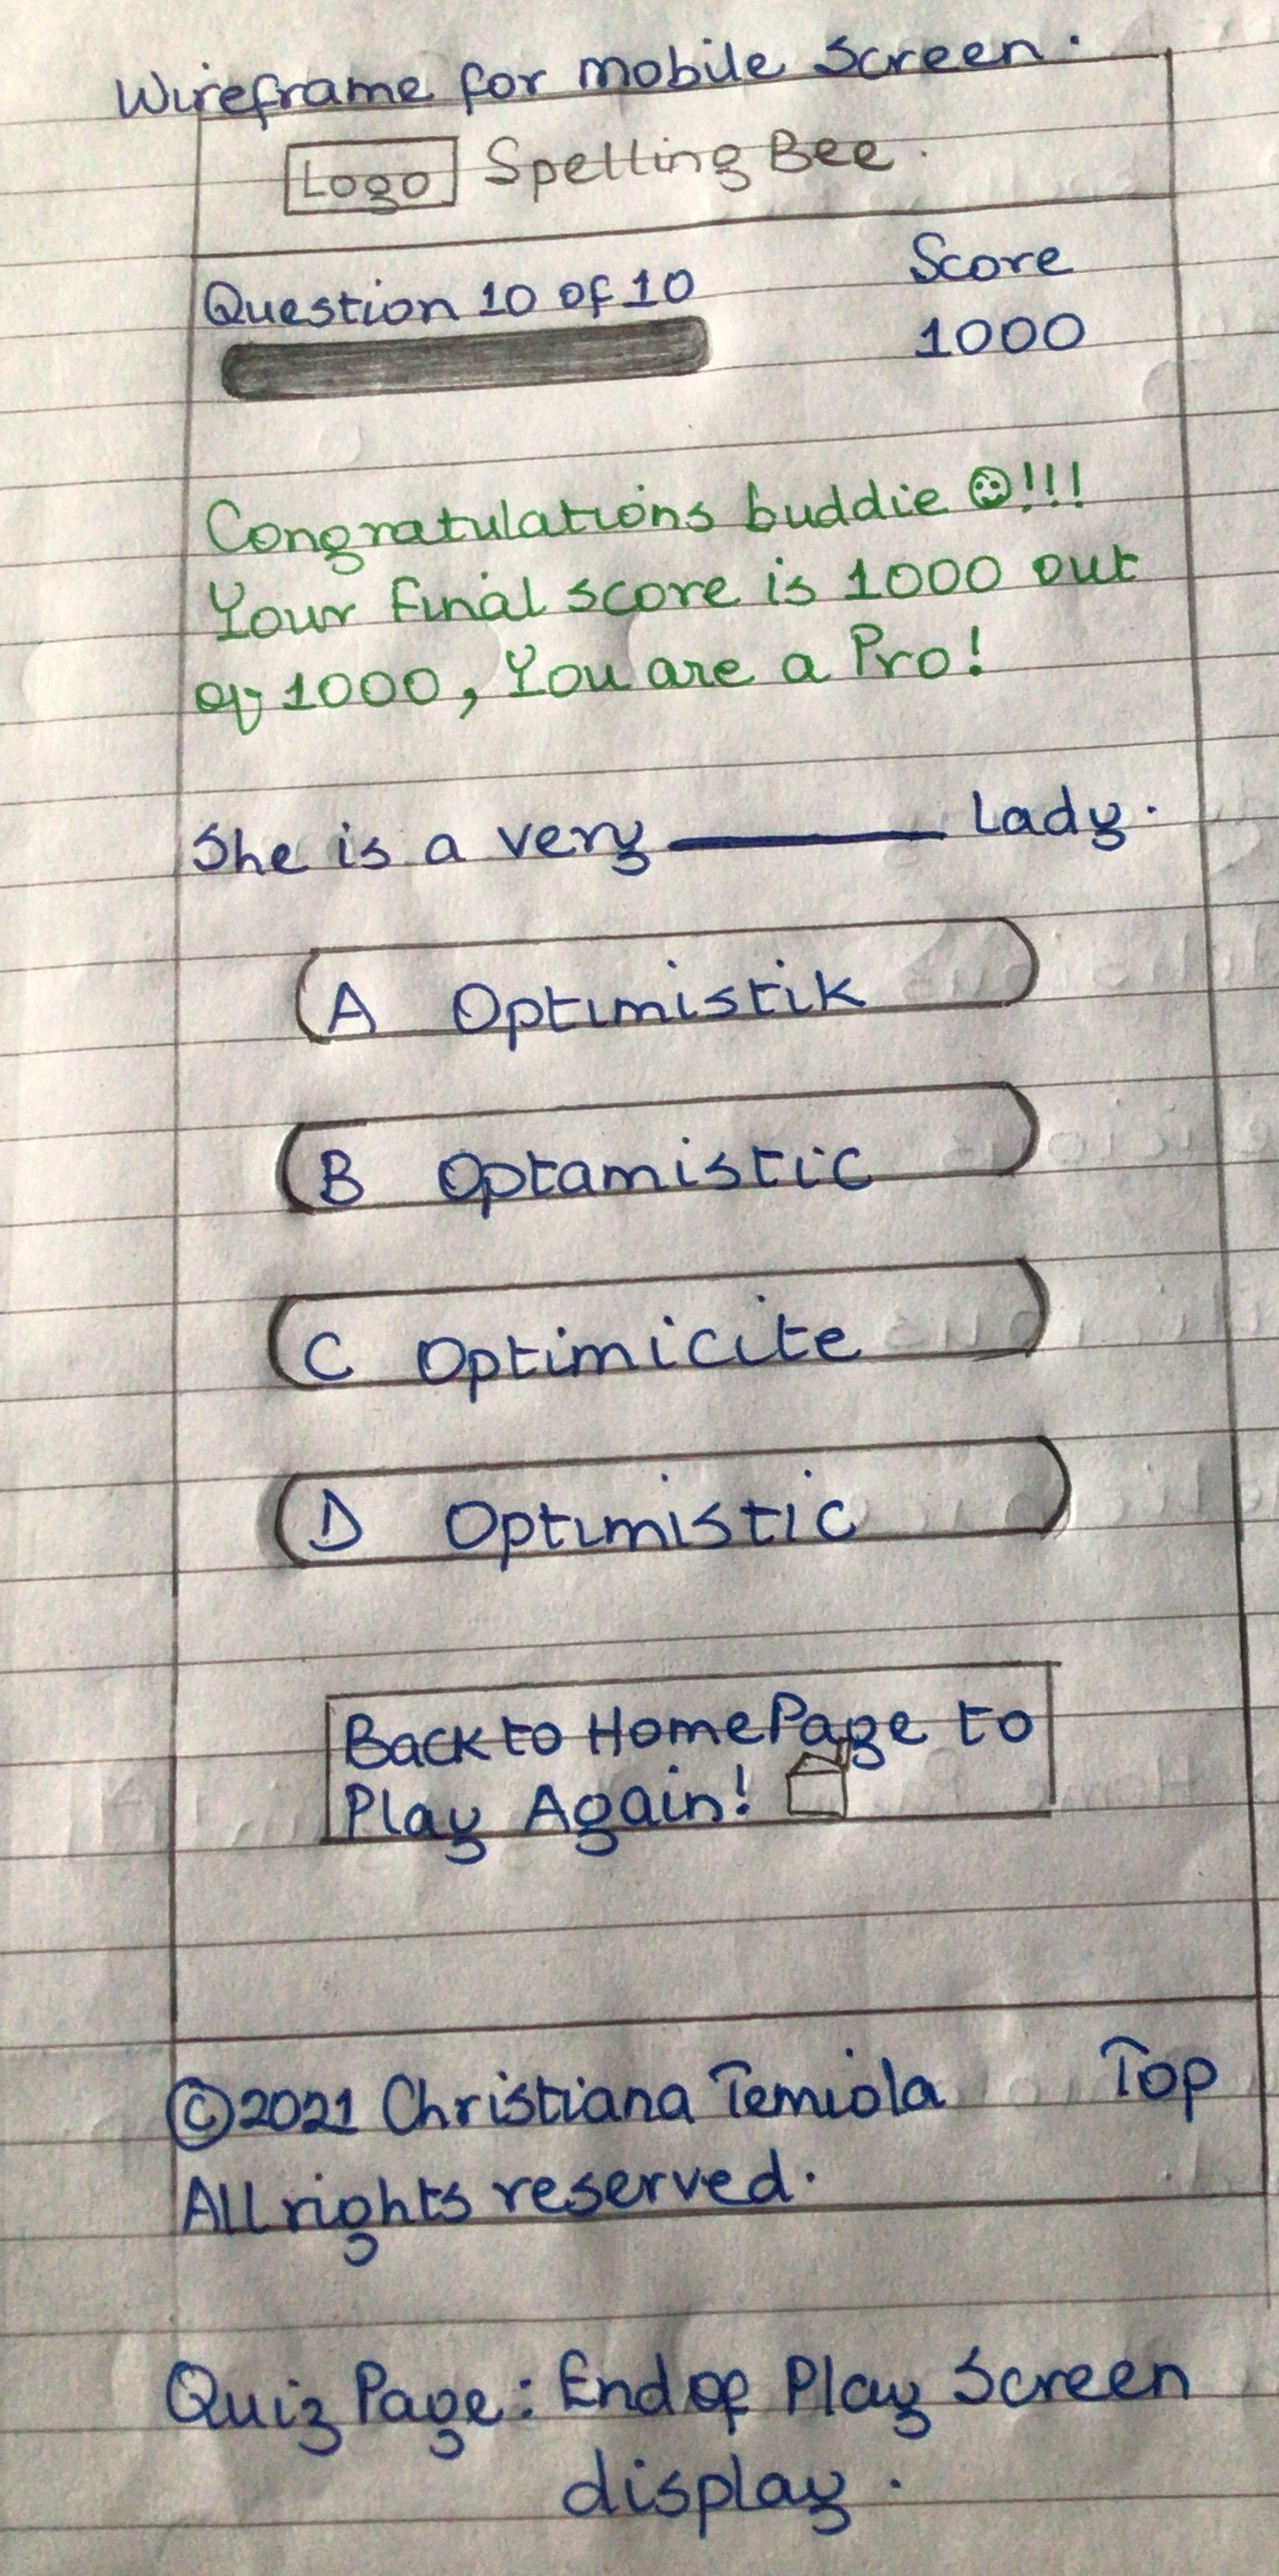 Wireframe for mobile Screen.
Logo Spelling Bee.
Question 10 of 10
Score
1000
Congratulations buddie ☺!!!
Your final score is 1000 out
of 1000, You are a Pro!
She is a very ______ Lady.
A Optimistik
B Optamistic
C Optimicite
D Optimistic
Back to HomePage to
Play Again!
©2021 Christiana Temiola Top
All rights reserved.
Quiz Page: End of Play Screen
display.